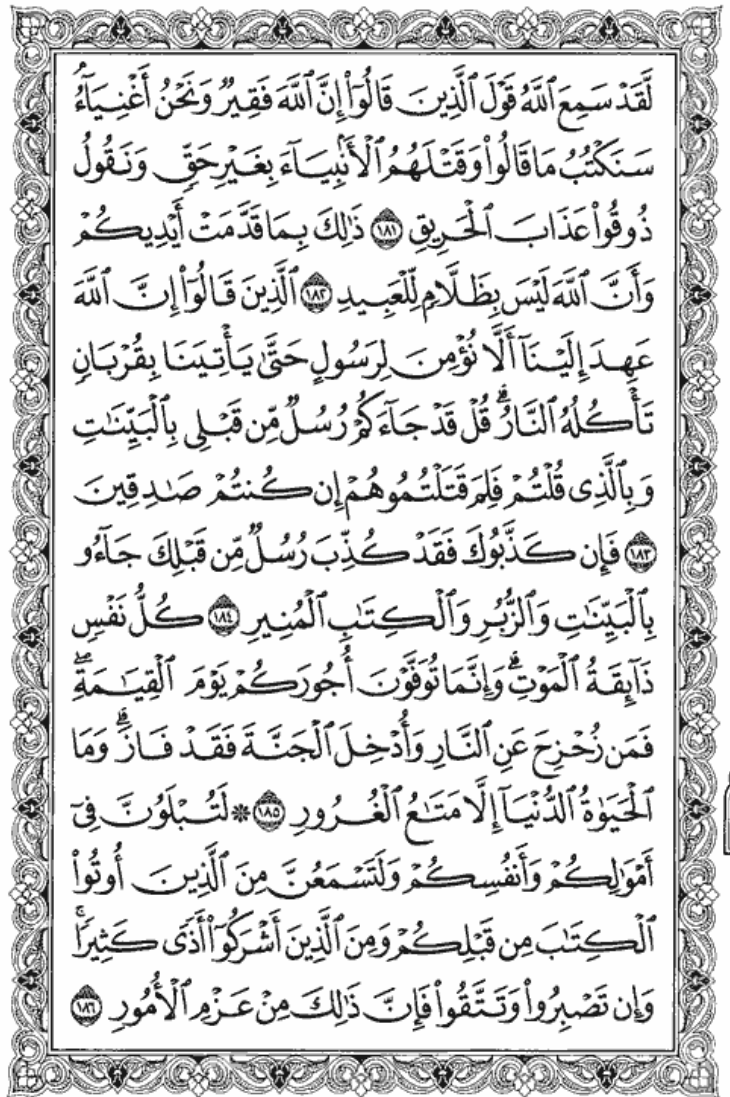 لَّقَدْ سَمِعَ ٱللَّهُ قَوْلَ ٱلَّذِينَ قَالُوٓا۟ إِنَّ ٱللَّهَ فَقِيرٌ وَنَحْنُ أَغْنِيَآءُ ۘ
سَنَكْتُبُ مَا قَالُوا۟ وَقَتْلَهُمُ ٱلْأَنۢبِيَآءَ بِغَيْرِ حَقٍّ وَنَقُولُ
ذُوقُوا۟ عَذَابَ ٱلْحَرِيقِ ١٨١ ذَٰلِكَ بِمَا قَدَّمَتْ أَيْدِيكُمْ
وَأَنَّ ٱللَّهَ لَيْسَ بِظَلَّامٍ لِّلْعَبِيدِ ١٨٢ ٱلَّذِينَ قَالُوٓا۟ إِنَّ ٱللَّهَ
عَهِدَ إِلَيْنَآ أَلَّا نُؤْمِنَ لِرَسُولٍ حَتَّىٰ يَأْتِيَنَا بِقُرْبَانٍ
تَأْكُلُهُ ٱلنَّارُ ۗ قُلْ قَدْ جَآءَكُمْ رُسُلٌ مِّن قَبْلِى بِٱلْبَيِّنَٰتِ
وَبِٱلَّذِى قُلْتُمْ فَلِمَ قَتَلْتُمُوهُمْ إِن كُنتُمْ صَٰدِقِينَ
١٨٣ فَإِن كَذَّبُوكَ فَقَدْ كُذِّبَ رُسُلٌ مِّن قَبْلِكَ جَآءُو
بِٱلْبَيِّنَٰتِ وَٱلزُّبُرِ وَٱلْكِتَٰبِ ٱلْمُنِيرِ ١٨٤ كُلُّ نَفْسٍ
ذَآئِقَةُ ٱلْمَوْتِ ۗ وَإِنَّمَا تُوَفَّوْنَ أُجُورَكُمْ يَوْمَ ٱلْقِيَٰمَةِ ۖ
فَمَن زُحْزِحَ عَنِ ٱلنَّارِ وَأُدْخِلَ ٱلْجَنَّةَ فَقَدْ فَازَ ۗ وَمَا
ٱلْحَيَوٰةُ ٱلدُّنْيَآ إِلَّا مَتَٰعُ ٱلْغُرُورِ ١٨٥ ۞ لَتُبْلَوُنَّ فِىٓ
أَمْوَٰلِكُمْ وَأَنفُسِكُمْ وَلَتَسْمَعُنَّ مِنَ ٱلَّذِينَ أُوتُوا۟
ٱلْكِتَٰبَ مِن قَبْلِكُمْ وَمِنَ ٱلَّذِينَ أَشْرَكُوٓا۟ أَذًى كَثِيرًا ۚ
وَإِن تَصْبِرُوا۟ وَتَتَّقُوا۟ فَإِنَّ ذَٰلِكَ مِنْ عَزْمِ ٱلْأُمُورِ ١٨٦